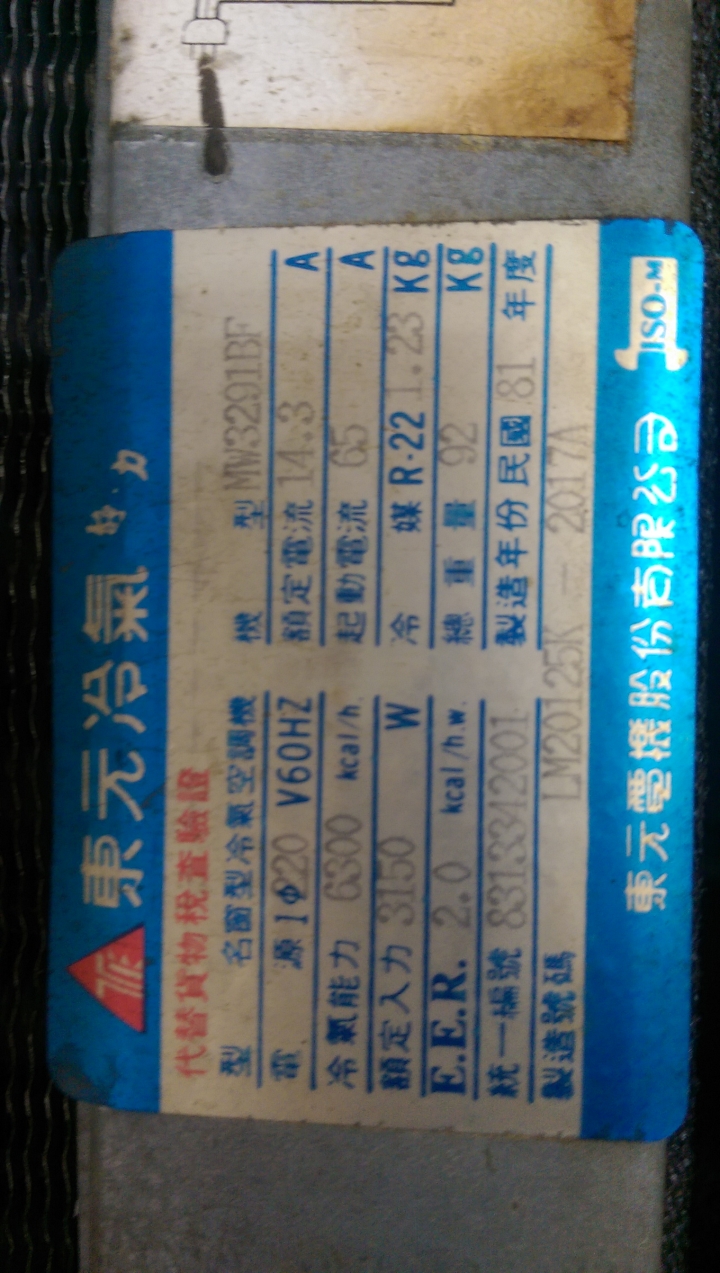 東元冷氣
代替貨物稅查驗證
型名窗型冷氣空調機
機型 MW3291BF
電源 1φ220 V60HZ
額定電流 14.3 A
冷氣能力 6300 kcal/h
起動電流 65 A
額定入力 3150 W
冷媒 R-22 1.23 Kg
E.E.R. 2.0 kcal/h.w.
總重量 92 Kg
統一編號 8313342001
製造年份民國 81 年度
製造號碼 LM20125K — 2017A
東元電機股份有限公司
ISO-M